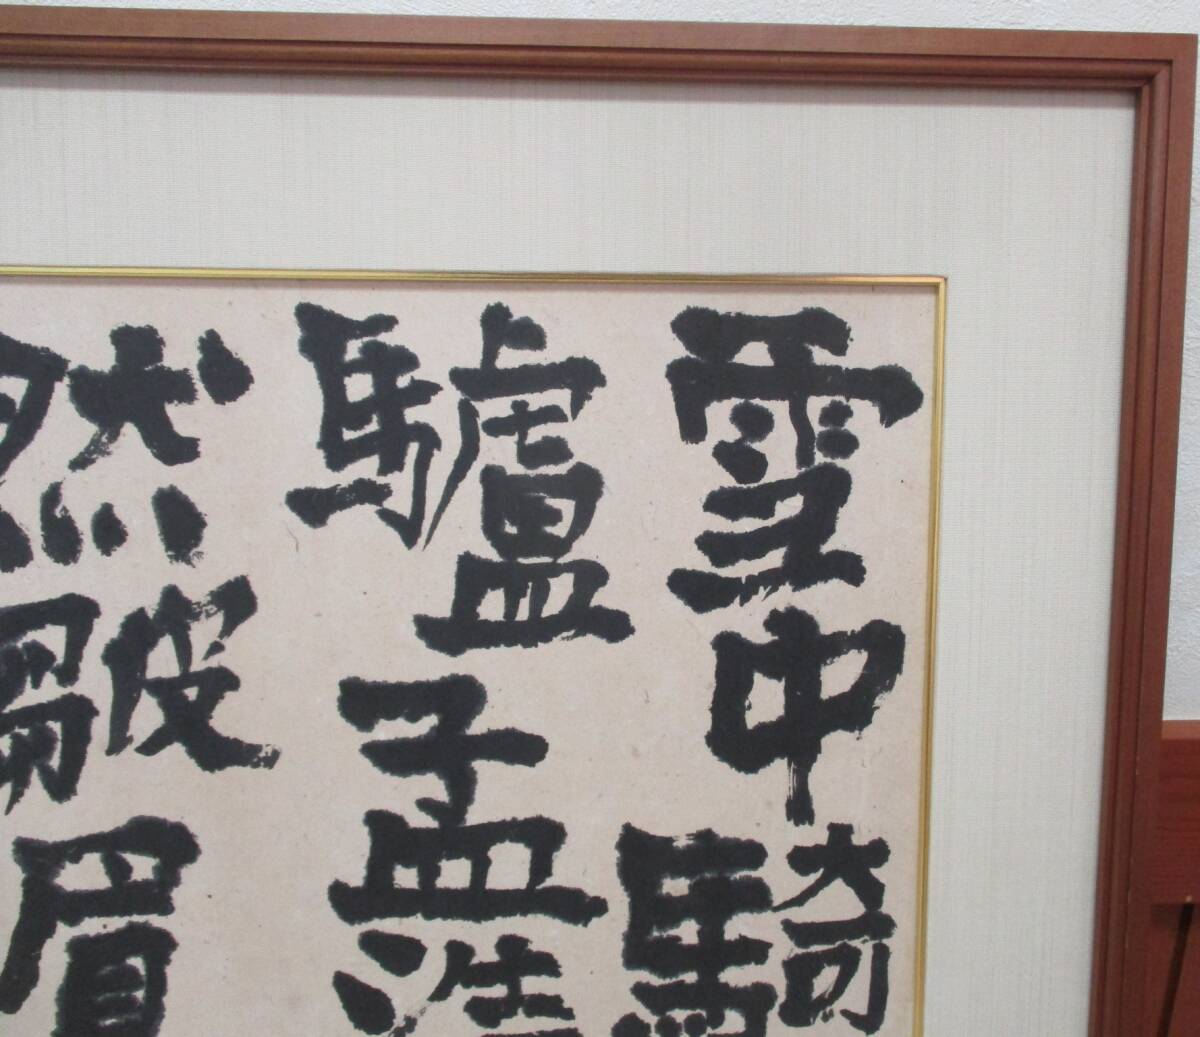 雪中騎
驢孟浩
然皺眉